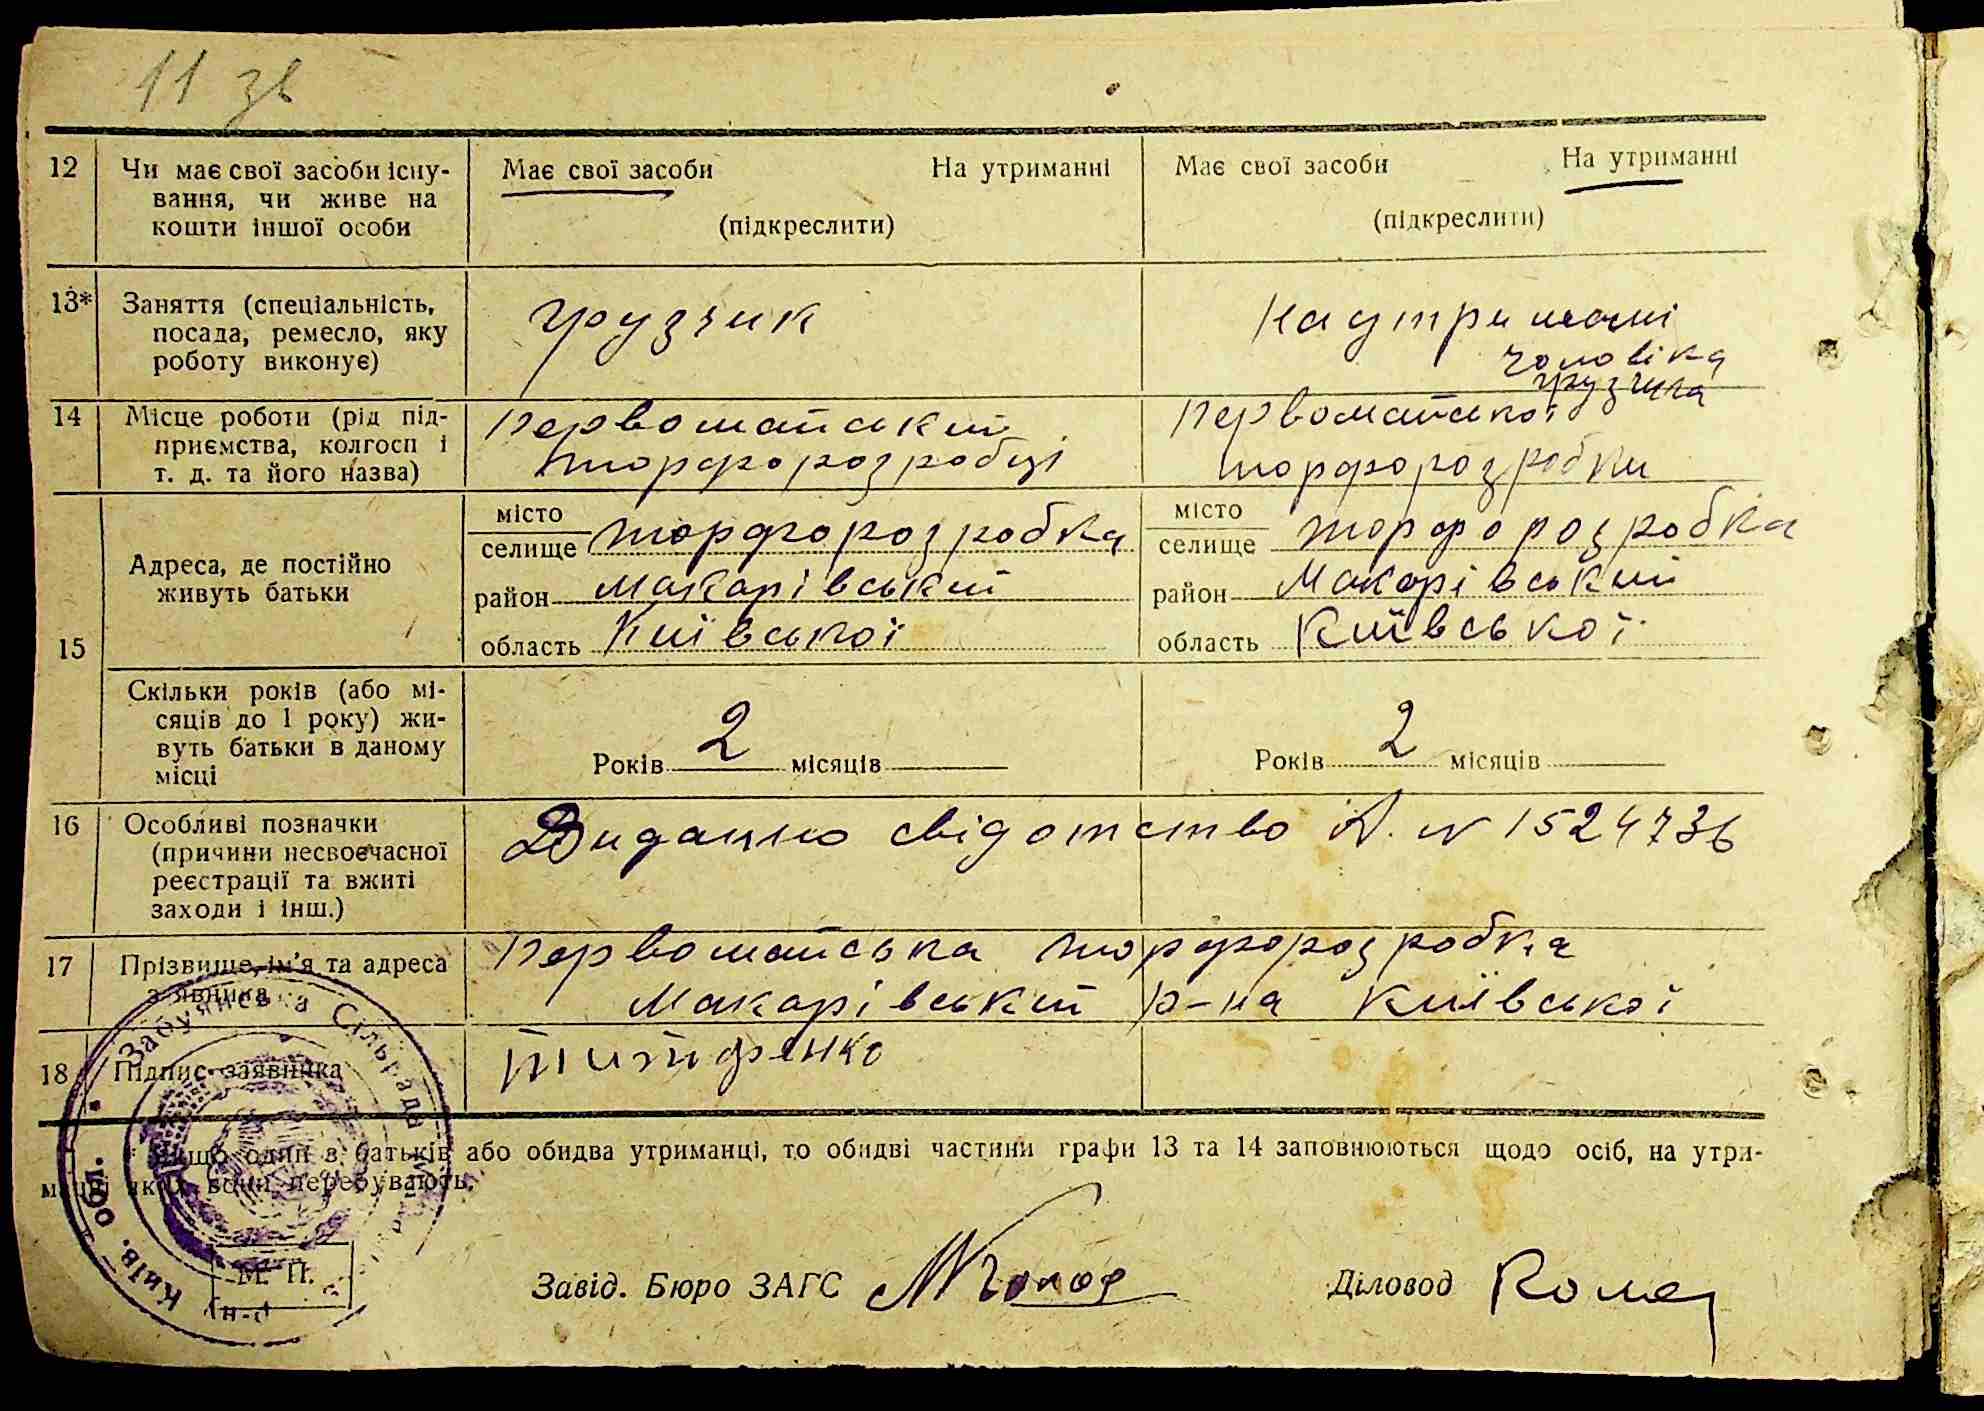 11 зв
12 Чи має свої засоби існу- Має свої засоби На утриманні Має свої засоби На утриманні
вання, чи живе на
кошти іншої особи (підкреслити) (підкреслити)
13* Заняття (спеціальність, грузчик на утриманні
посада, ремесло, яку чоловіка
роботу виконує) грузчика
14 Місце роботи (рід під- Первомайський Первомайської
приємства, колгосп і торфорозробці торфорозробки
т. д. та його назва)
15 Адреса, де постійно живуть батьки
місто місто
селище торфорозробка селище торфорозробка
район Макарівський район Макарівський
область Київської область Київської
Скільки років (або мі-
сяців до 1 року) жи-
вуть батьки в даному Років 2 місяців Років 2 місяців
місці
16 Особливі позначки Виданно свідотство № 1524736
(причини несвоєчасної
реєстрації та вжиті
заходи і інш.)
17 Прізвище, ім'я та адреса Первомайська торфорозробка
заявника Макарівський р-на Київської
18 Підпис заявника
* Якщо один з батьків або обидва утриманці, то обидві частини графи 13 та 14 заповнюються щодо осіб, на утри-
манні яких вони перебувають.
Забуянська Сільрада
Київ. обл.
М. П.
Завід. Бюро ЗАГС Діловод